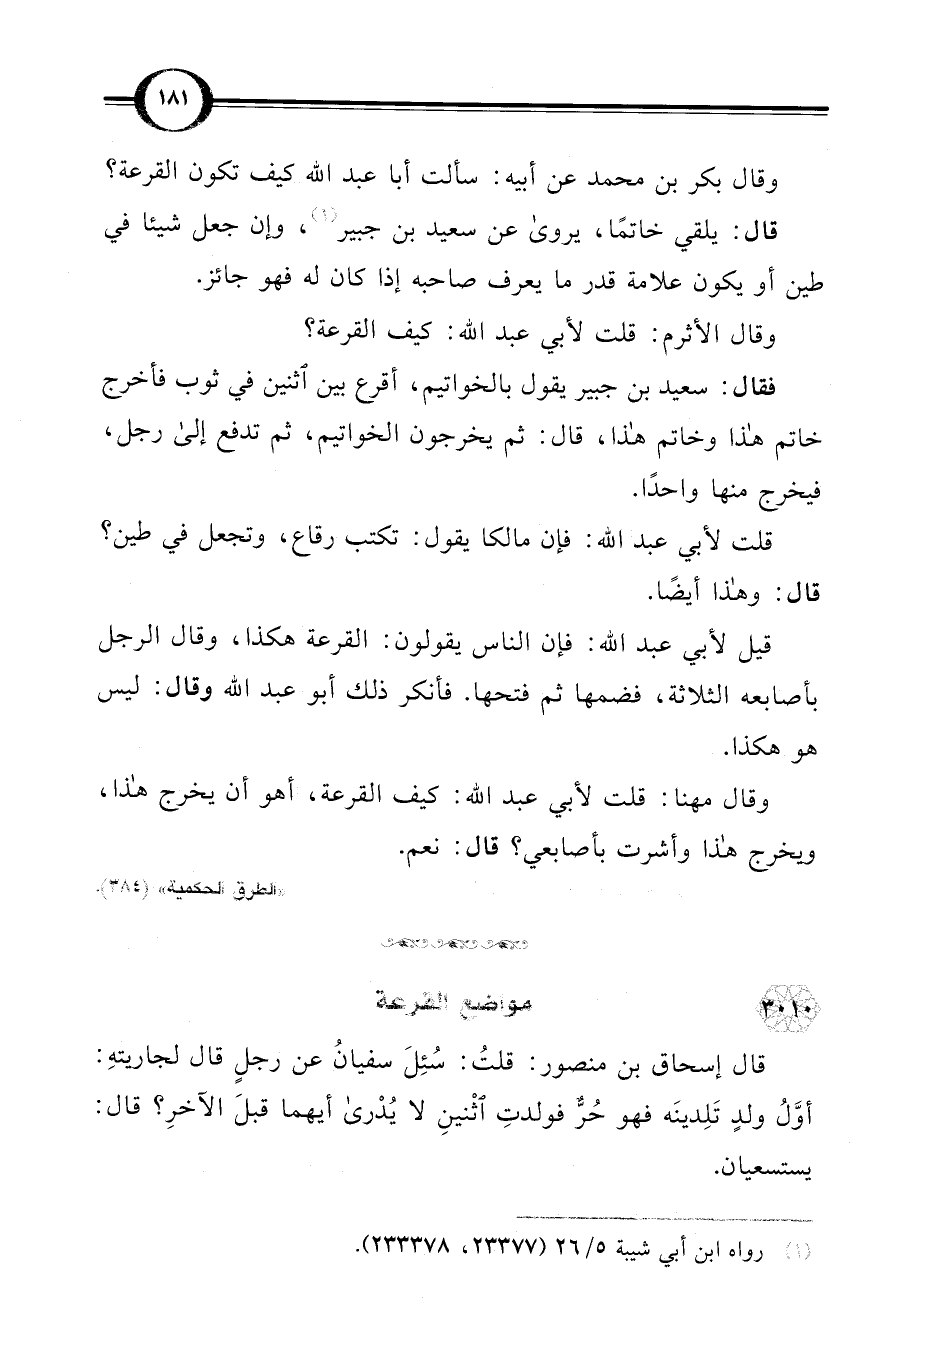 ١٨١
وقال بكر بن محمد عن أبيه: سألت أبا عبد الله كيف تكون القرعة؟
قال: يلقي خاتمًا، يروىٰ عن سعيد بن جبير(١)، وإن جعل شيئا في
طين أو يكون علامة قدر ما يعرف صاحبه إذا كان له فهو جائز.
وقال الأثرم: قلت لأبي عبد الله: كيف القرعة؟
فقال: سعيد بن جبير يقول بالخواتيم، أقرع بين ٱثنين في ثوب فأخرج
خاتم هٰذا وخاتم هٰذا، قال: ثم يخرجون الخواتيم، ثم تدفع إلىٰ رجل،
فيخرج منها واحدًا.
قلت لأبي عبد الله: فإن مالكا يقول: تكتب رقاع، وتجعل في طين؟
قال: وهٰذا أيضًا.
قيل لأبي عبد الله: فإن الناس يقولون: القرعة هكذا، وقال الرجل
بأصابعه الثلاثة، فضمها ثم فتحها. فأنكر ذلك أبو عبد الله وقال: ليس
هو هكذا.
وقال مهنا: قلت لأبي عبد الله: كيف القرعة، أهو أن يخرج هٰذا،
ويخرج هٰذا وأشرت بأصابعي؟ قال: نعم.
«الطرق الحكمية» (٣٨٤).
٣٠١٠ مواضع القرعة
قال إسحاق بن منصور: قلتُ: سُئِلَ سفيانُ عن رجلٍ قال لجاريتهِ:
أوَّلُ ولدٍ تَلِدينَه فهو حُرٌّ فولدتِ ٱثْنينِ لا يُدْرىٰ أيهما قبلَ الآخرِ؟ قال:
يستسعيان.
(١) رواه ابن أبي شيبة ٥/ ٢٦ (٢٣٣٧٧، ٢٣٣٣٧٨).